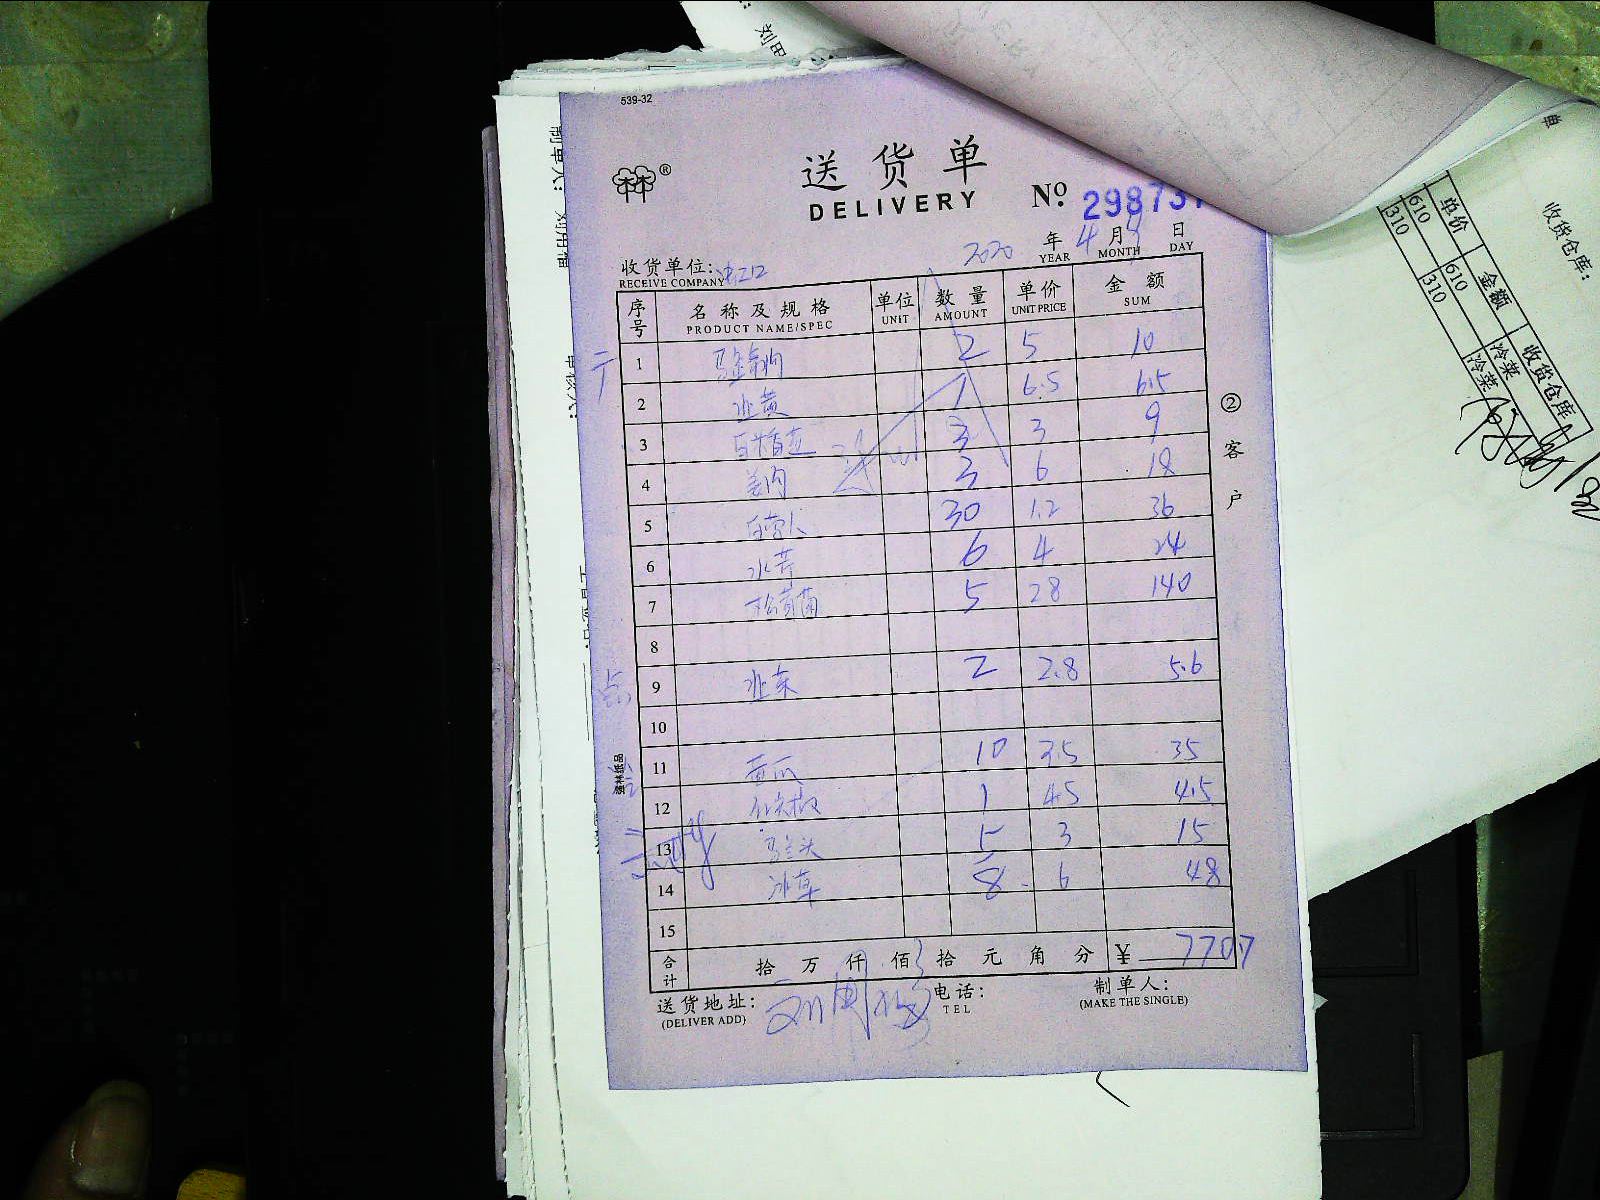 539-32
送货单
DELIVERY
№ 298737
2020 年 4 月 3 日
YEAR MONTH DAY
收货单位:
RECEIVE COMPANY
序号 名称及规格 单位 数量 单价 金额
PRODUCT NAME/SPEC UNIT AMOUNT UNIT PRICE SUM
1 2 5 10
2 韭黄 1 6.5 6.5
3 3 3 9
4 姜肉 3 6 18
5 30 1.2 36
6 水芹 6 4 24
7 松茸菌 5 28 140
8
9 韭菜 2 2.8 5.6
10
11 黄瓜 10 3.5 35
12 1 4.5 4.5
13 马兰头 5 3 15
14 冰草 8 6 48
15
合计 拾万仟佰拾元角分 ¥ 770.7
送货地址: 电话: 制单人:
(DELIVER ADD) TEL (MAKE THE SINGLE)
② 客户
强林纸品
制单人: 刘用福
审核人:
收货仓库:
单价 金额 收货仓库
610 610 冷菜
310 310 冷菜